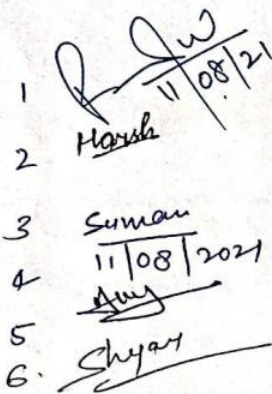 1
11/08/21
2 Harsh
3 Suman
4 11/08/2021
5
6. Shyam